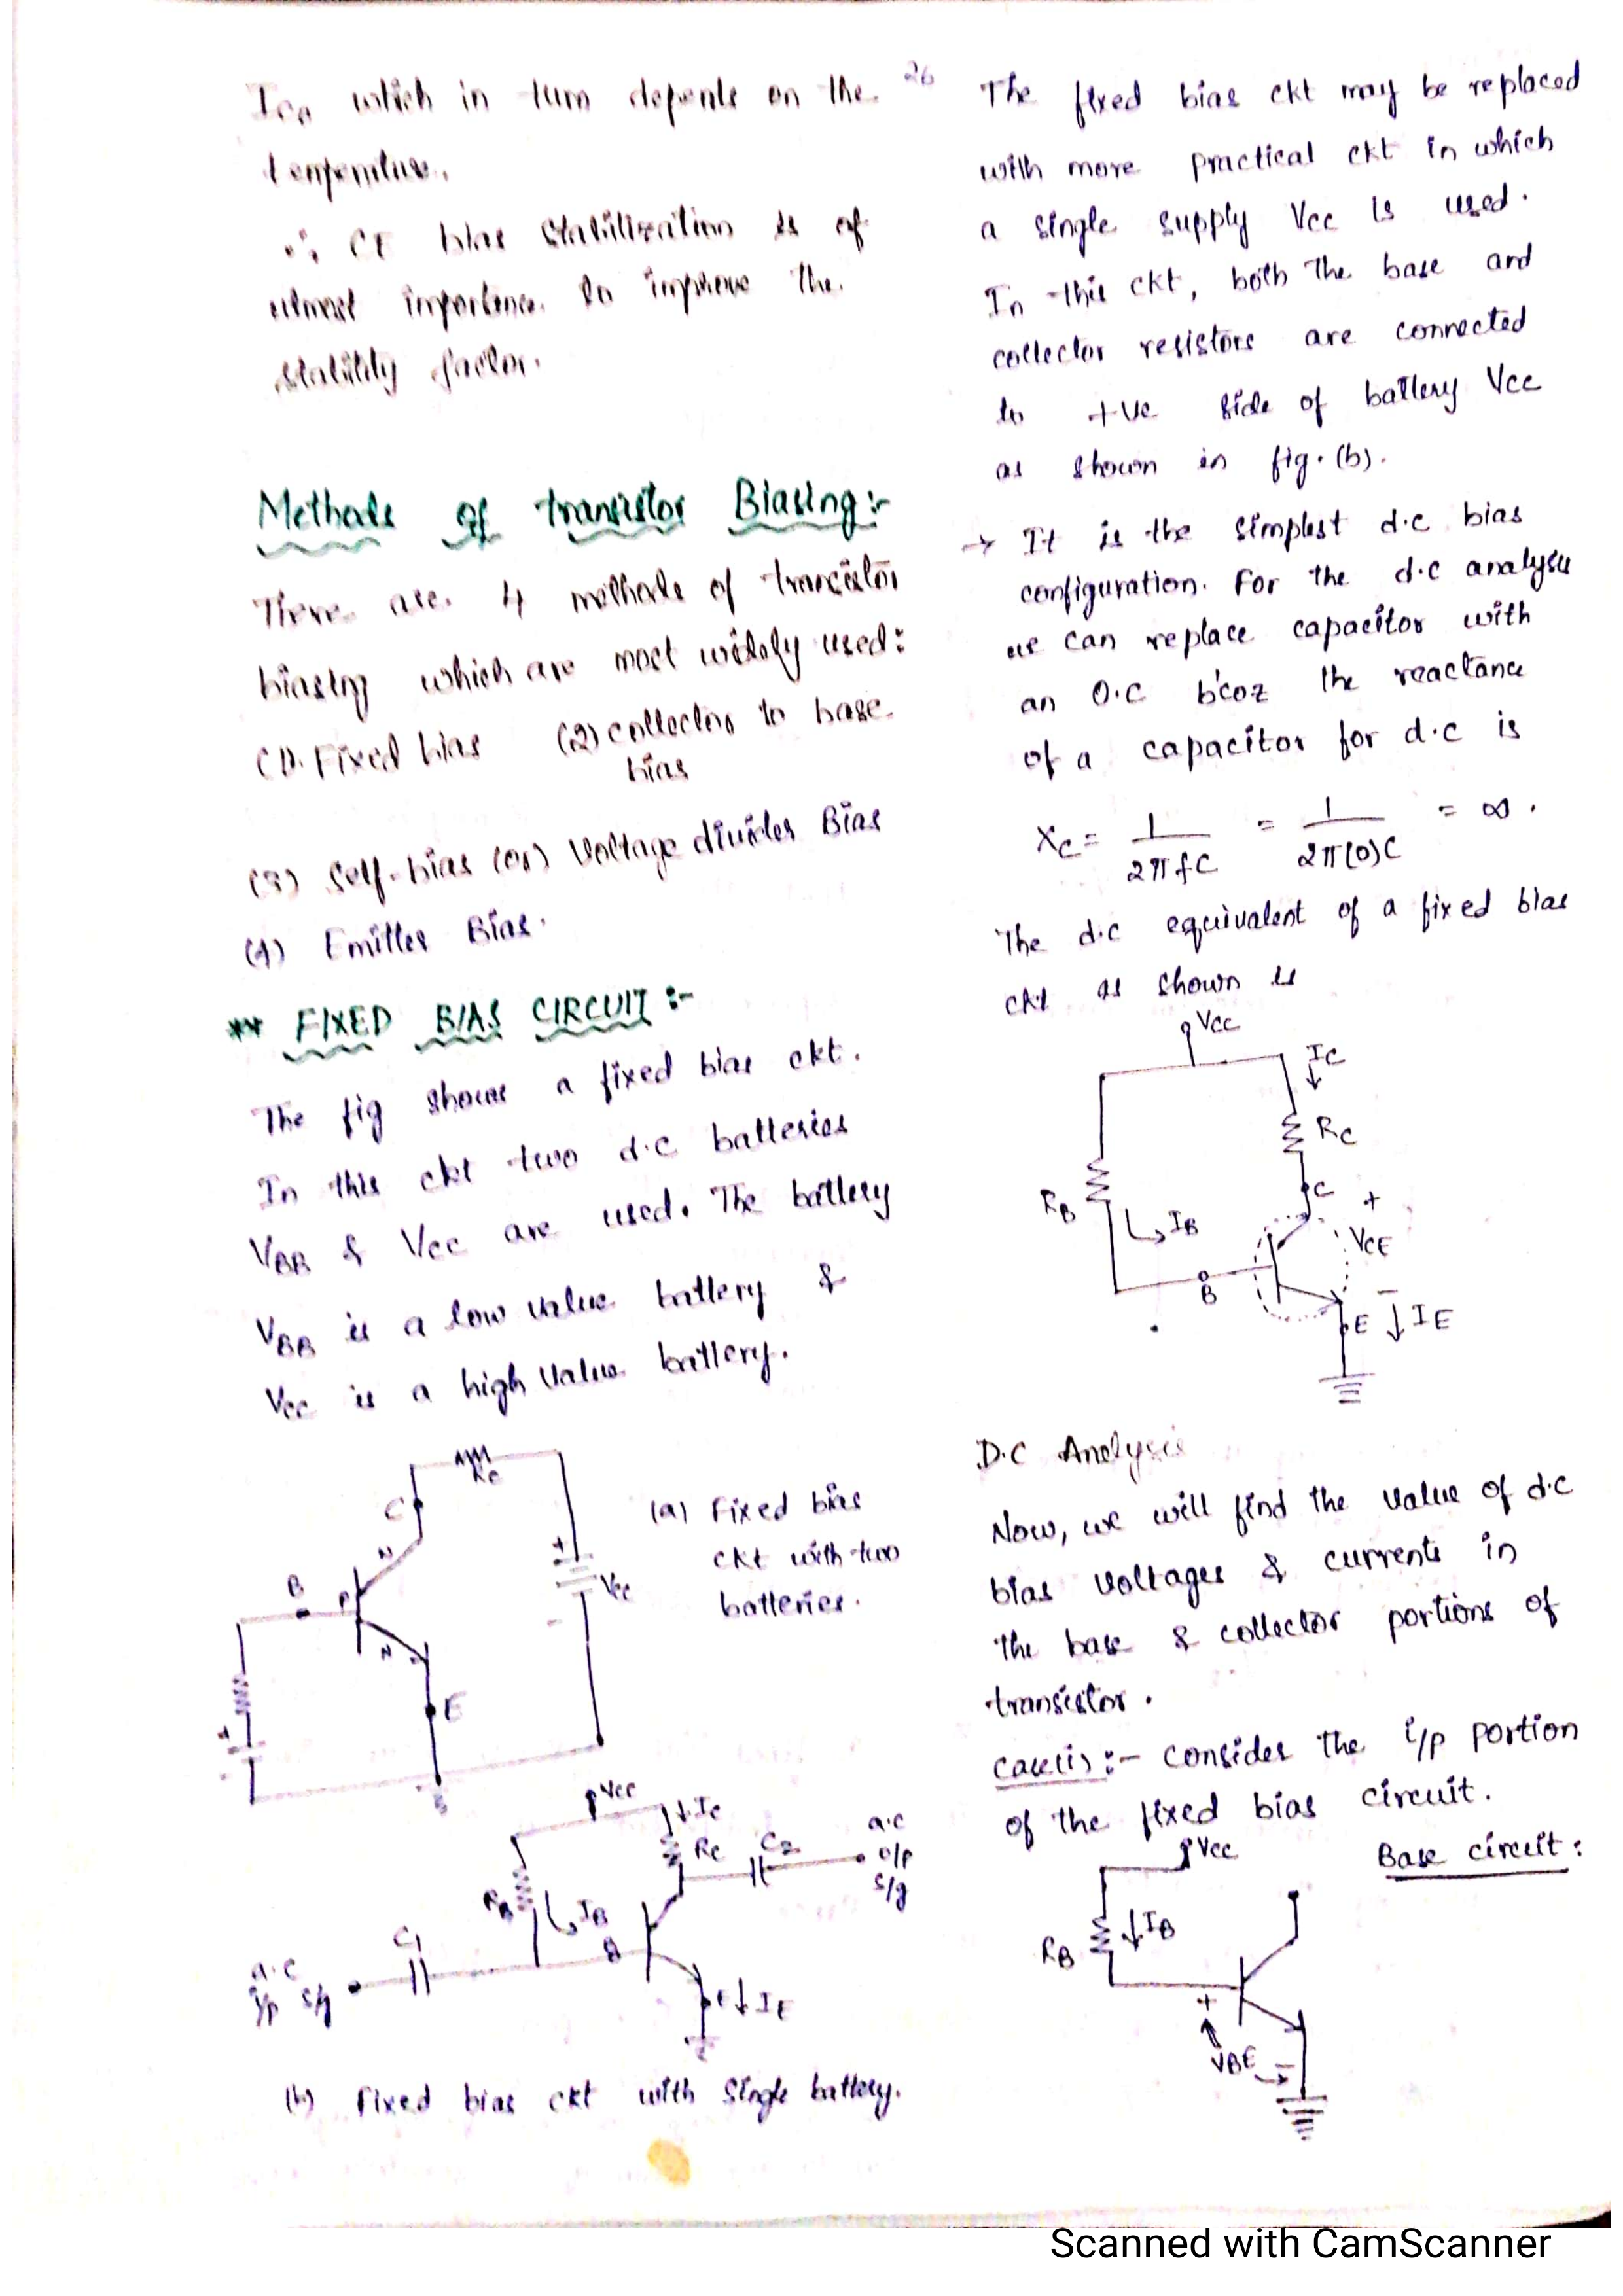 Ico which in turn depends on the
temperature.
∴ CE bias stabilization is of
utmost importance to improve the
stability factor.
Methods of transistor Biasing:-
There are 4 methods of transistor
biasing which are most widely used:
(1). Fixed bias (2) collector to base
bias
(3) Self-bias (or) Voltage divider Bias
(4) Emitter Bias.
** FIXED BIAS CIRCUIT :-
The fig shows a fixed bias ckt.
In this ckt two d.c batteries
VBB & Vcc are used. The battery
VBB is a low value battery &
Vcc is a high value battery.
Rc
C
N
B
P
N
E
+
Vcc
-
+
-
(a) Fixed bias
ckt with two
batteries.
Vcc
↓ Ic
Rc
C2
a.c
o/p
s/g
RB
IB
C1
B
a.c
i/p s/g
E ↓ IE
(b) Fixed bias ckt with single battery.
26
The fixed bias ckt may be replaced
with more practical ckt in which
a single supply Vcc is used.
In this ckt, both the base and
collector resistors are connected
to +ve side of battery Vcc
as shown in fig.(b).
→ It is the simplest d.c bias
configuration. For the d.c analysis
we can replace capacitor with
an O.C b'coz the reactance
of a capacitor for d.c is
Xc = 1/2πfC = 1/2π(0)C = ∞.
The d.c equivalent of a fixed bias
ckt as shown is
Vcc
Ic
↓
Rc
C
+
RB
IB
VCE
B
-
E ↓ IE
D.C Analysis
Now, we will find the value of d.c
bias voltages & currents in
the base & collector portions of
transistor.
case(i):- consider the i/p portion
of the fixed bias circuit.
Vcc
Base circuit:
RB ↓IB
+
VBE
-
Scanned with CamScanner